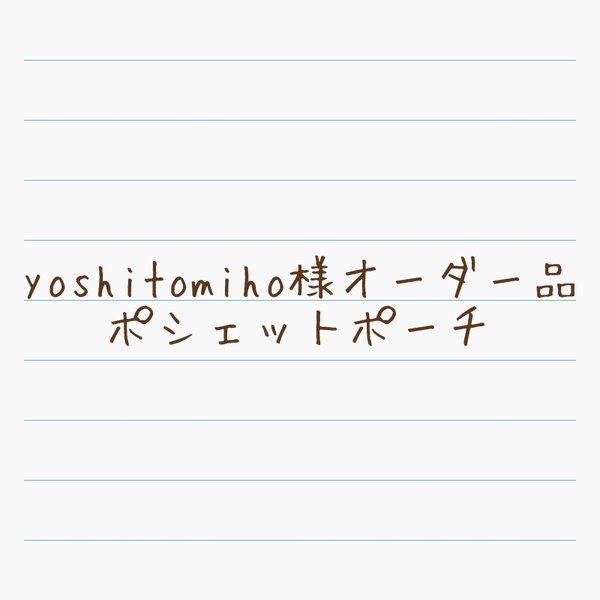 yoshitomiho様オーダー品
ポシェットポーチ